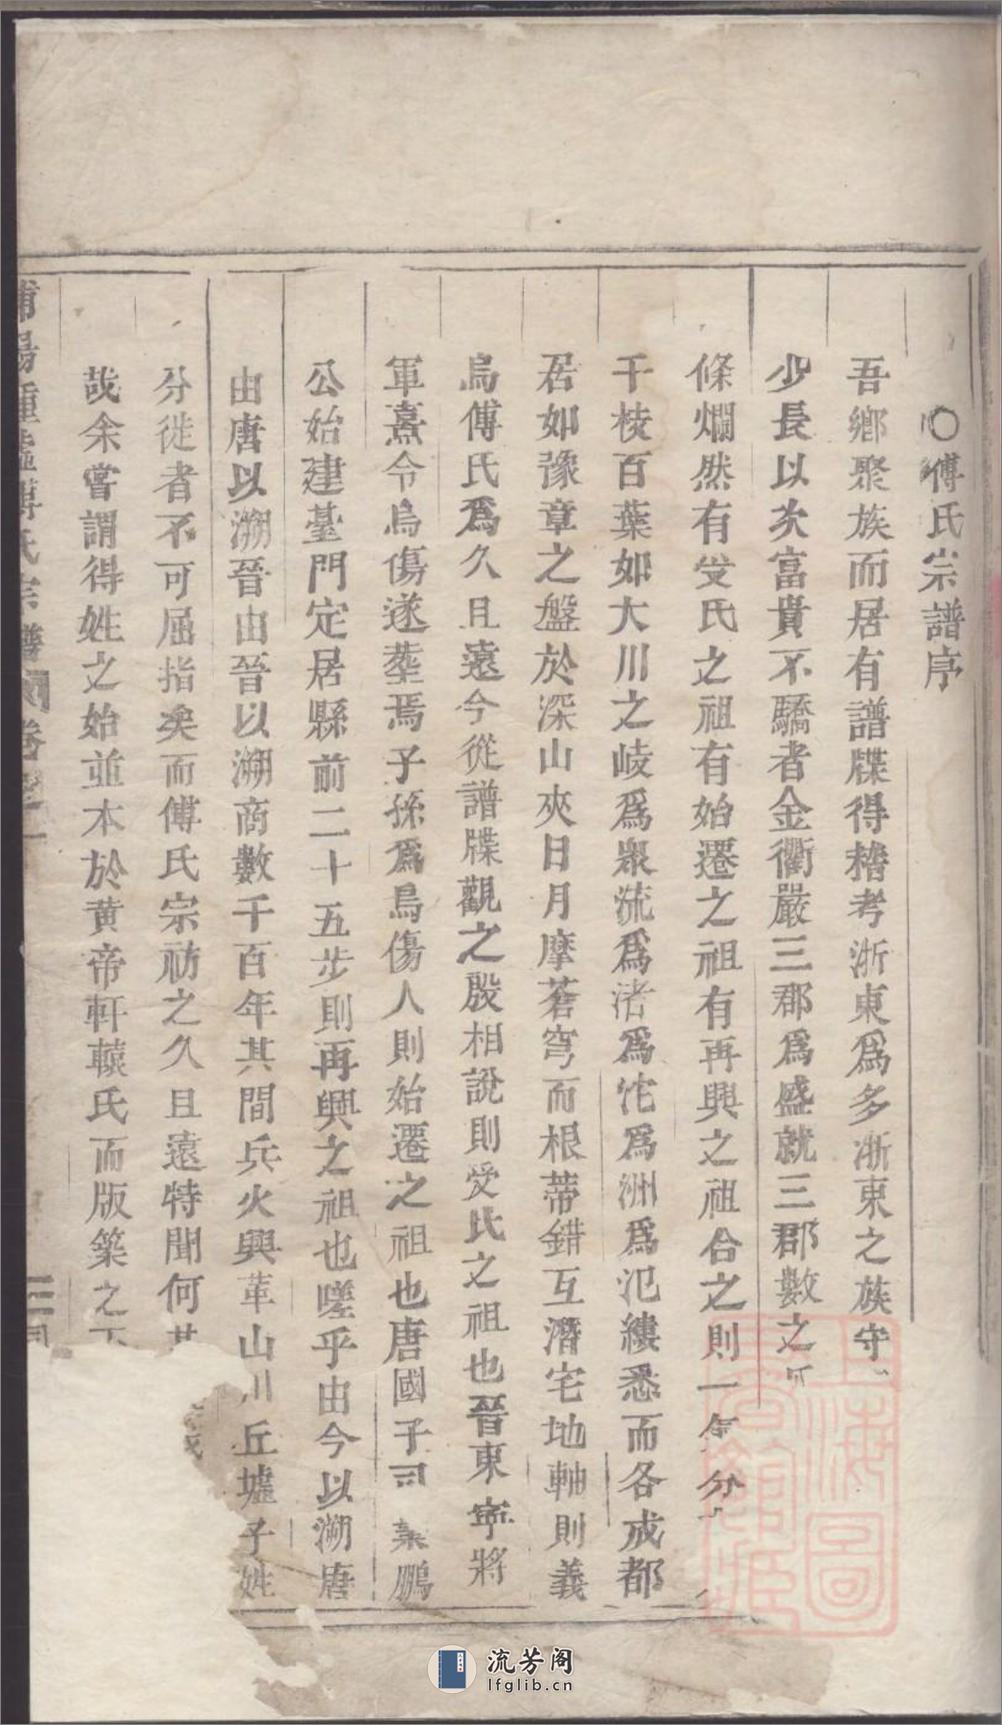 〇傅氏宗譜序
吾鄉聚族而居有譜牒得稽考浙東爲多浙東之族守
少長以次富貴不驕者金衢嚴三郡爲盛就三郡數之
條爛然有受氏之祖有始遷之祖有再興之祖合之則一 分
千棱百葉如大川之岐爲眾流爲渚爲沱爲洲爲氾縷悉而各成都
居如豫章之盤於深山夾日月摩蒼穹而根蒂錯互潛宅地軸則義
烏傅氏爲久且遠今從譜牒觀之殷相說則受氏之祖也晉東寧將
軍熹令烏傷遂塟焉子孫爲烏傷人則始遷之祖也唐國子司業鵬
公始建臺門定居縣前二十五步則再興之祖也嗟乎由今以溯唐
由唐以溯晉由晉以溯商數千百年其間兵火興革山川丘墟子姓
分徙者不可屈指矣而傅氏宗祊之久且遠特聞何其
哉余嘗謂得姓之始並本於黃帝軒轅氏而版築之
浦陽 傅氏宗譜 卷之一
上海圖書館藏
流芳阁
lfglib.cn